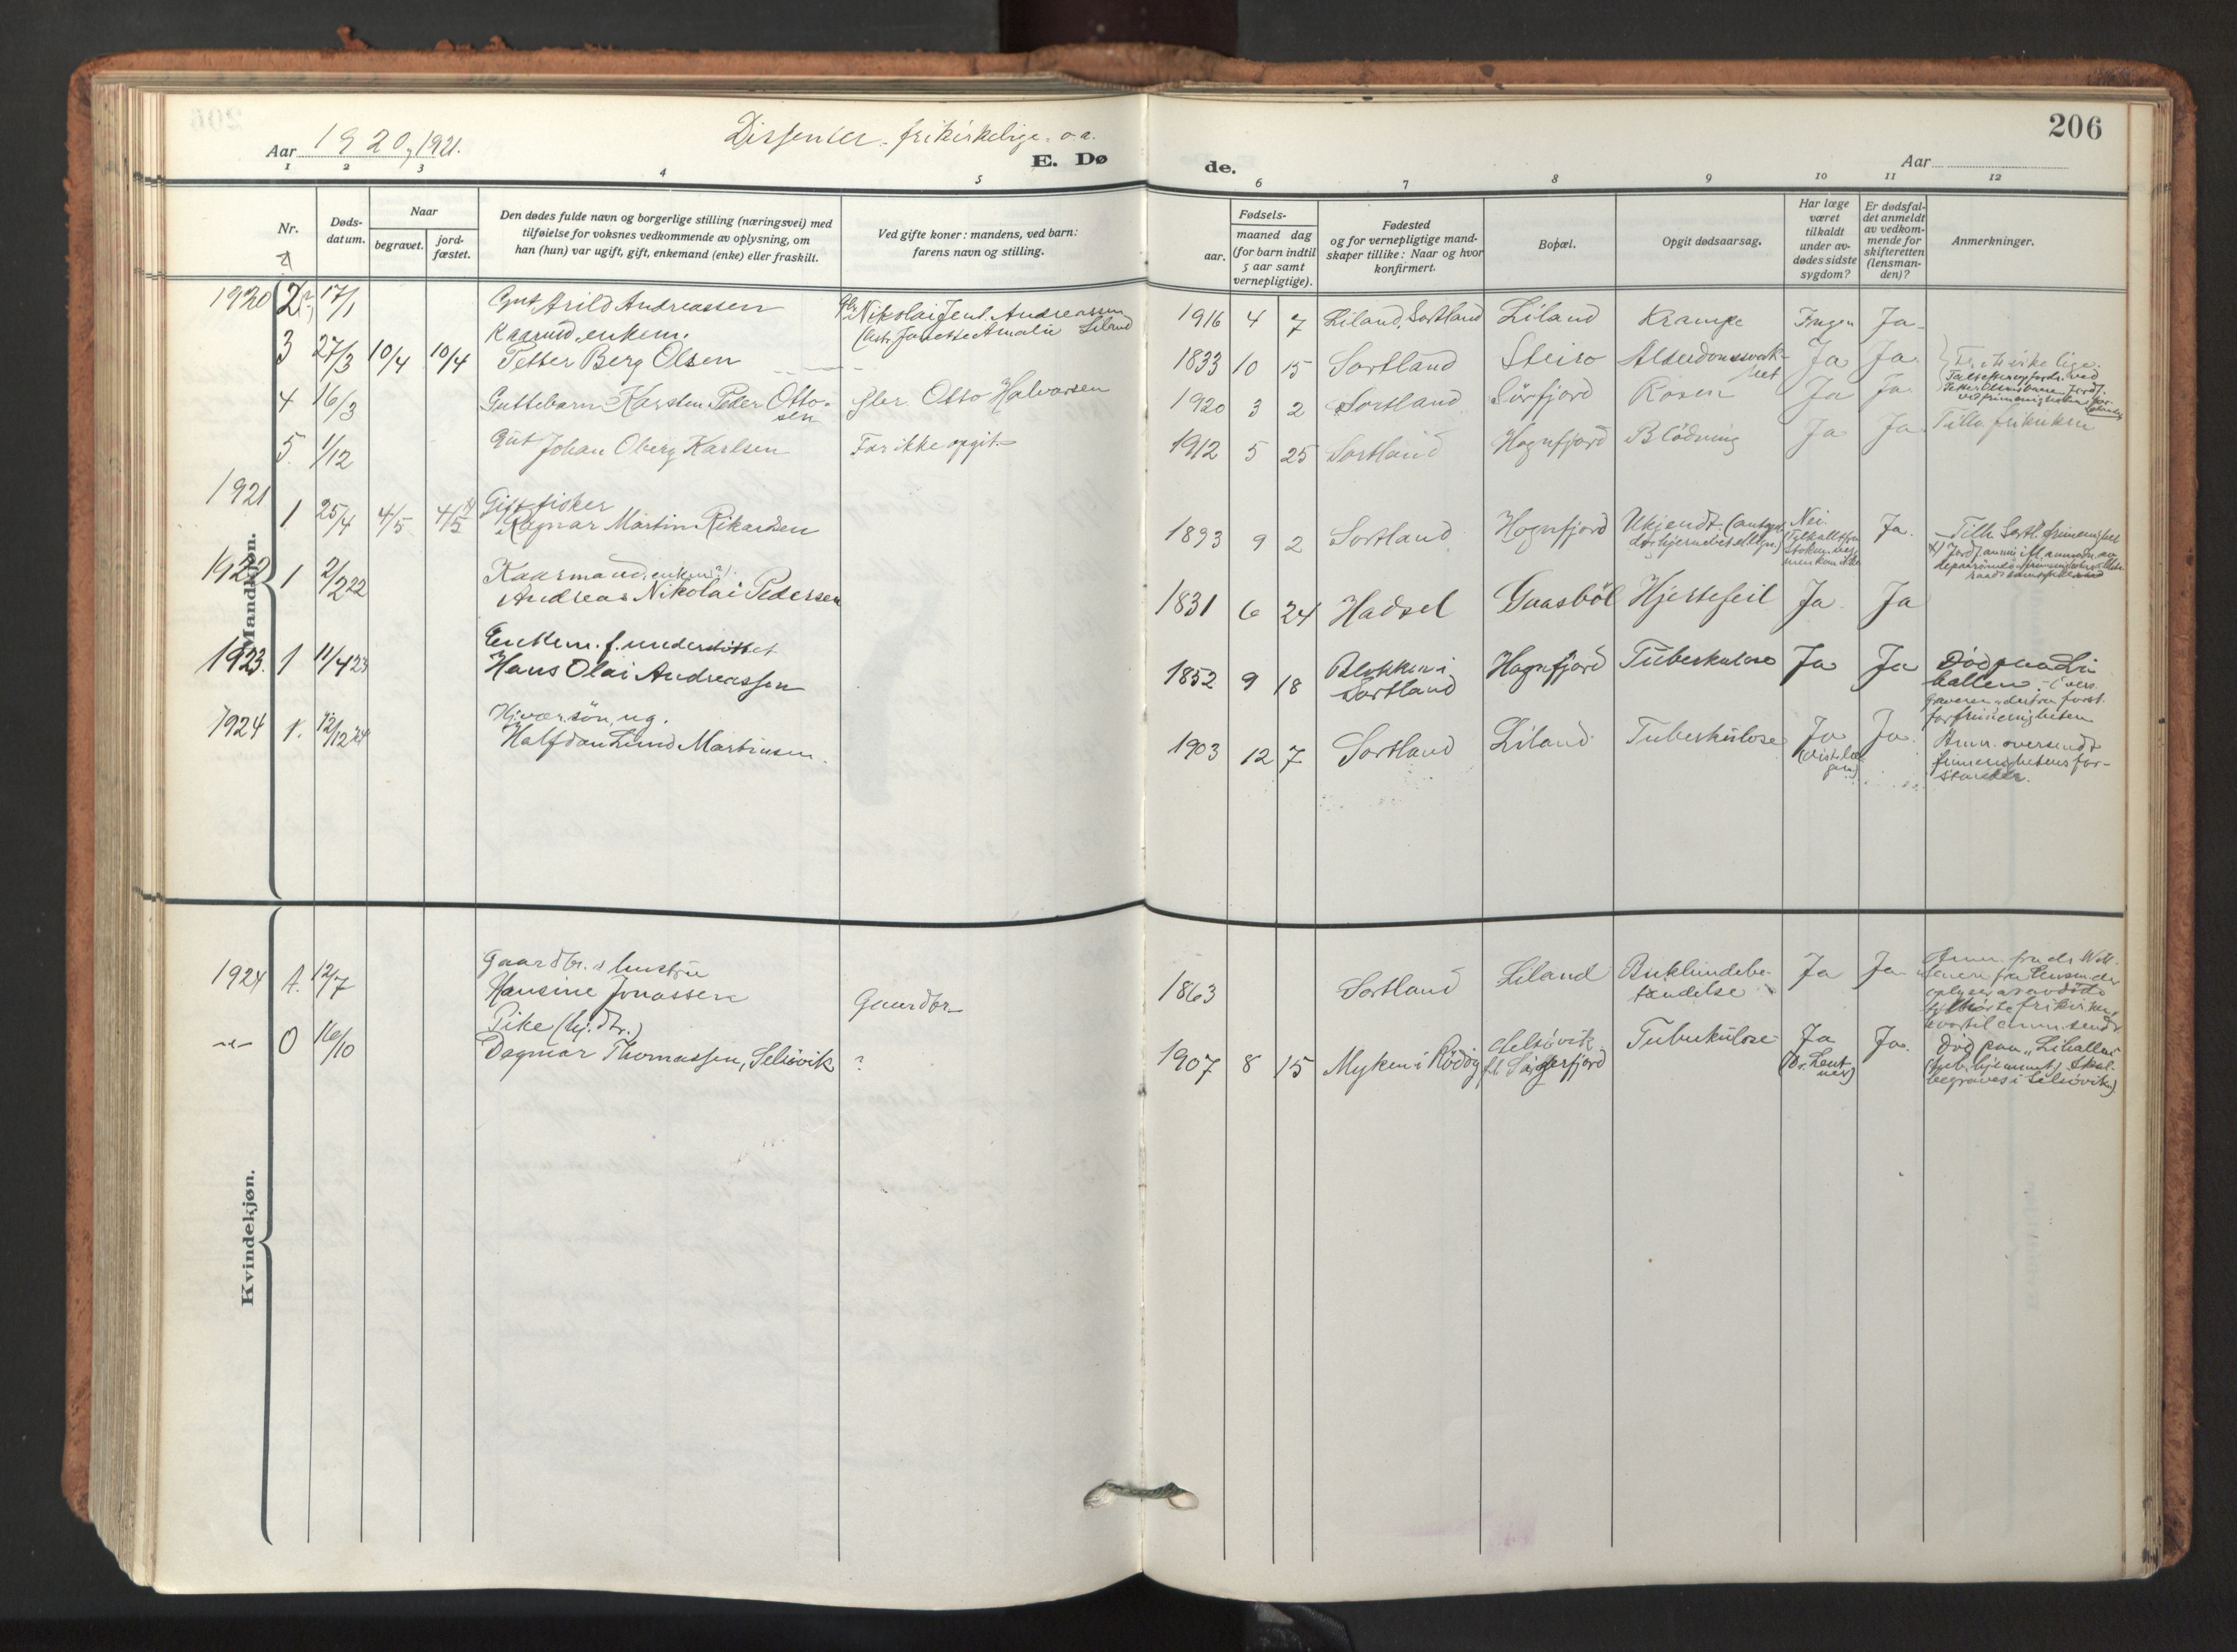 206
Aar 1920, 1921.
Dissenter, frikirkelige, o.a.
E. Dø
de.
Aar
1 2 3 4 5 6 7 8 9 10 11 12
Nr.
Døds-
datum.
Naar
begravet.
jord-
fæstet.
Den dødes fulde navn og borgerlige stilling (næringsvei) med
tilføielse for voksnes vedkommende av oplysning, om
han (hun) var ugift, gift, enkemand (enke) eller fraskilt.
Ved gifte koner: mandens, ved barn:
farens navn og stilling.
Fødsels-
aar.
maaned dag
(for barn indtil
5 aar samt
vernepligtige).
Fødested
og for vernepligtige mand-
skaper tillike: Naar og hvor
konfirmert.
Bopæl.
Opgit dødsaarsag.
Har læge
været
tilkaldt
under av-
dødes sidste
sygdom?
Er dødsfal-
det anmeldt
av vedkom-
mende for
skifteretten
(lensman-
den)?
Anmerkninger.
Mandkjøn.
1920 2 17/1 Gut Arild Andreassen
Nikolai Jent. Andreassen
Amalie Liland
1916 4 7 Liland, Sortland Liland Krampe Ingen Ja
3 27/3 10/4 10/4 Kaarmd, enkem.
Petter Berg Olsen
1833 10 15 Sortland Steiro Alderdomssvak-
het Ja Ja
Frikirkelige.
4 16/3 Guttebarn Karsten Peder Otto-
sen Gbr. Otto Halvorsen
1920 3 2 Sortland Sörfjord Rosen Ja Ja
5. 1/12 Gut Johan Oberg Karlsen Far ikke opgit
1912 5 25 Sortland Hognfjord Blödning Ja Ja Tilh. frikirken
1921 1 25/4 4/5 4/5 Gift fisker
Ragnar Martin Rikardsen
1893 9 2 Sortland Hognfjord Ukjendt Nei. Ja.
Tilh. Sortl. frimenighet
1922 1 2/2 22 Kaarmand, enkem?
Andreas Nikolai Pedersen
1831 6 24 Hadsel Gaasböl Hjertefeil Ja Ja
1923. 1 11/4 23 Enkem. f. understöttet
Hans Olai Andreassen
1852 9 18 Blokken i
Sortland Hognfjord Tuberkulose Ja Ja Död paa Li-
hallen
for frimenigheten
1924 1. 12/12 24 Hj.vær. sön, ug.
Halfdan Lund Martinsen.
1903 12 7 Sortland Liland Tuberkulose Ja Ja. Anm. oversendt
frimenighetens for-
stander.
Kvindekjøn.
1924 12/7 Gaardbr.s hustru
Hansine Jonassen Gaardbr.
1863 Sortland Liland Buklindebe-
tændelse Ja Ja
0 16/10 Pike (hj. dtr.)
Dagmar Thomassen, Selsövik ?
1907 8 15 Myken i Rödöy Selsövik
Tuberkulose Ja Ja.
Död paa "Lihallen"
(tub. hjemmet) Skal
begraves i Selsövik.)